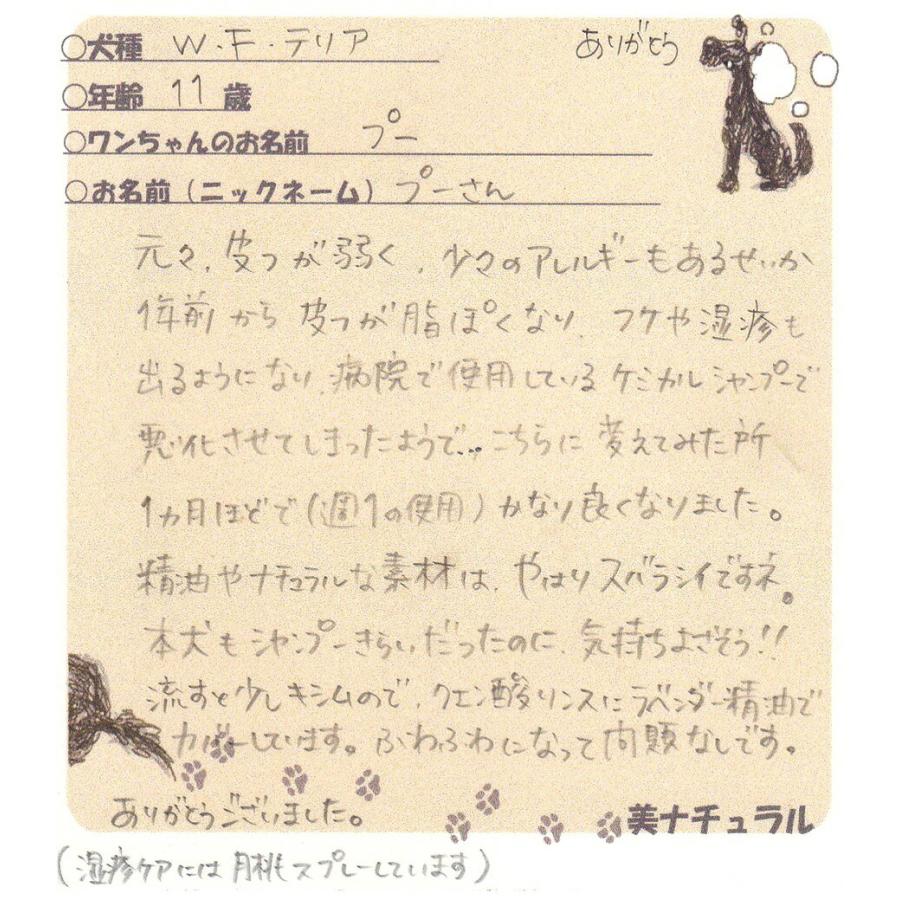 ○犬種 W・F・テリア
ありがとう
○年齢 11 歳
○ワンちゃんのお名前 プー
○お名前(ニックネーム) プーさん
元々、皮フが弱く、少々のアレルギーもあるせいか
1年前から皮フが脂ぽくなり、フケや湿疹も
出るようになり、病院で使用しているケミカルシャンプーで
悪化させてしまったようで…こちらに変えてみた所
1ヵ月ほどで(週1の使用)かなり良くなりました。
精油やナチュラルな素材は、やはりスバラシイですネ。
本犬もシャンプーきらいだったのに、気持ちよさそう!!
流すと少しキシムので、クエン酸リンスにラベンダー精油で
カバーしています。ふわふわになって問題なしです。
ありがとうございました。
美ナチュラル
(湿疹ケアには月桃スプレーしています)